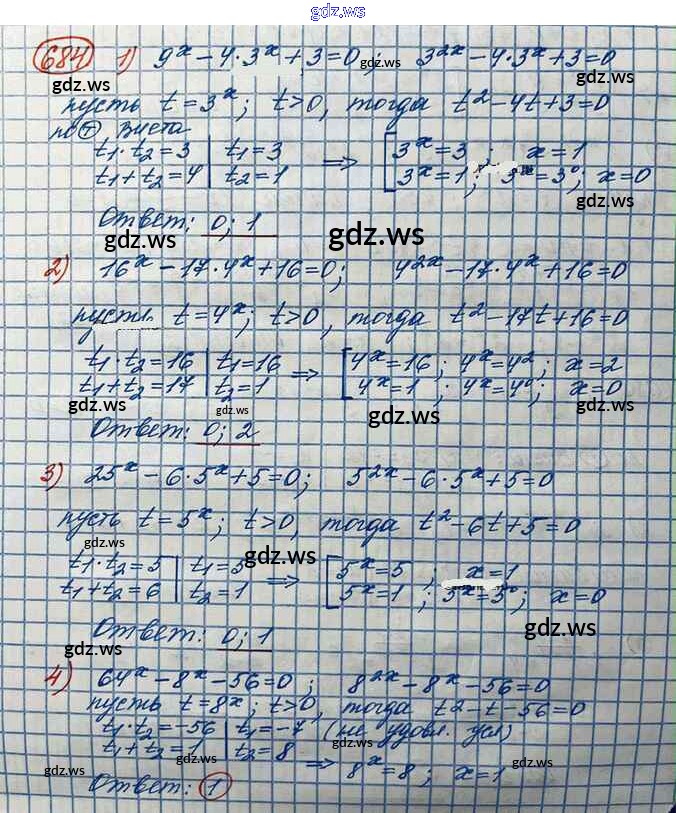 gdz.ws
684 1) 9ˣ - 4·3ˣ + 3 = 0; 3²ˣ - 4·3ˣ + 3 = 0
gdz.ws
gdz.ws
пусть t = 3ˣ; t > 0, тогда t² - 4t + 3 = 0
по т Виета
t₁·t₂ = 3 | t₁ = 3 => [ 3ˣ = 3 ; x = 1
t₁ + t₂ = 4 | t₂ = 1 3ˣ = 1 ; 3ˣ = 3⁰; x = 0
gdz.ws
gdz.ws
gdz.ws
Ответ: 0; 1
gdz.ws
gdz.ws
2) 16ˣ - 17·4ˣ + 16 = 0; 4²ˣ - 17·4ˣ + 16 = 0
пусть t = 4ˣ; t > 0, тогда t² - 17t + 16 = 0
t₁·t₂ = 16 | t₁ = 16 => [ 4ˣ = 16 ; 4ˣ = 4² ; x = 2
t₁ + t₂ = 17 | t₂ = 1 4ˣ = 1 ; 4ˣ = 4⁰; x = 0
gdz.ws
gdz.ws
gdz.ws
gdz.ws
Ответ: 0; 2
3) 25ˣ - 6·5ˣ + 5 = 0; 5²ˣ - 6·5ˣ + 5 = 0
пусть t = 5ˣ; t > 0, тогда t² - 6t + 5 = 0
gdz.ws
gdz.ws
t₁·t₂ = 5 | t₁ = 5 => [ 5ˣ = 5 ; x = 1
t₁ + t₂ = 6 | t₂ = 1 5ˣ = 1 ; 5ˣ = 5⁰; x = 0
Ответ: 0; 1
gdz.ws
gdz.ws
4) 64ˣ - 8ˣ - 56 = 0; 8²ˣ - 8ˣ - 56 = 0
пусть t = 8x; t > 0, тогда t2 - t - 56 = 0
t₁·t₂ = -56 | t₁ = -7 (не удовл. усл)
t₁ + t₂ = 1 | t₂ = 8
gdz.ws
=> 8ˣ = 8 ; x = 1
gdz.ws
gdz.ws
gdz.ws
Ответ: 1